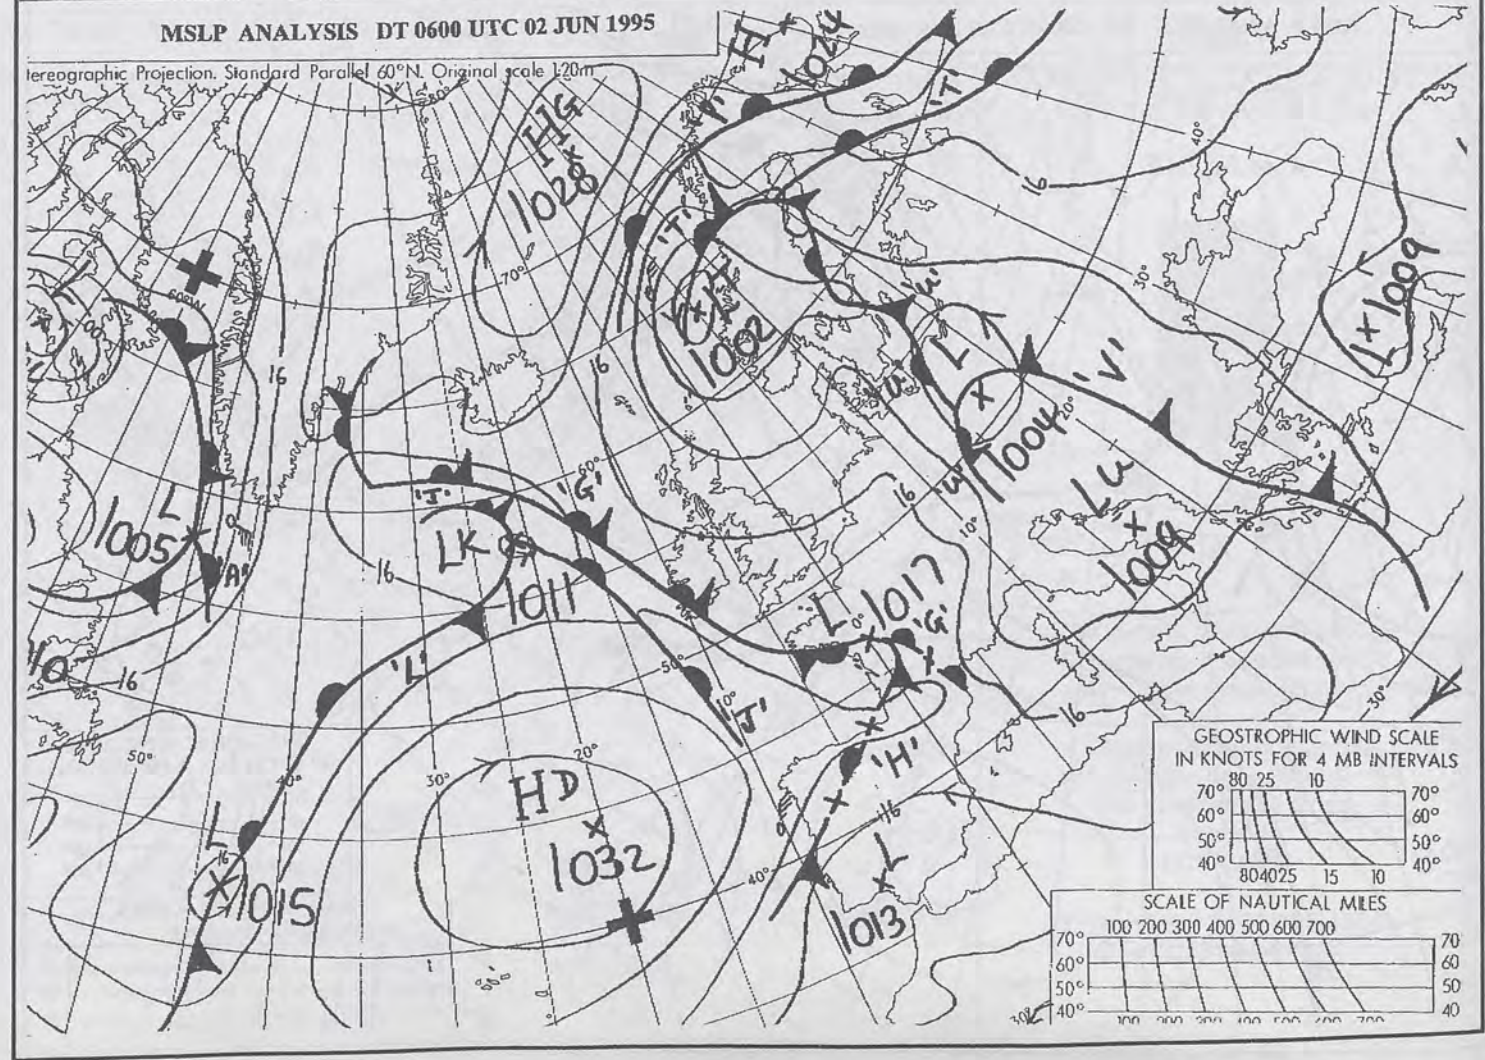 MSLP ANALYSIS DT 0600 UTC 02 JUN 1995
tereographic Projection. Standard Parallel 60°N. Original scale 1:20m
H
1024
80°
HG
1028
'P'
'T'
40°
16
70°
'T'
L
1009
30°
1002
'U'
16
16
L
'V'
'U'
20°
1004
L
1005
'A'
'J'
'G'
60°
16
'W'
LU
10°
1009
LK
1011
16
L
1017
0°
'G'
16
'L'
50°
10°
'J'
16
30°
50°
40°
30°
20°
'H'
HD
1032
16
L
16
1015
40°
L
1013
GEOSTROPHIC WIND SCALE
IN KNOTS FOR 4 MB INTERVALS
80 25 10
70° 70°
60° 60°
50° 50°
40° 40°
80 40 25 15 10
SCALE OF NAUTICAL MILES
100 200 300 400 500 600 700
70° 70
60° 60
50° 50
40° 40
30°
100 200 300 400 500 600 700